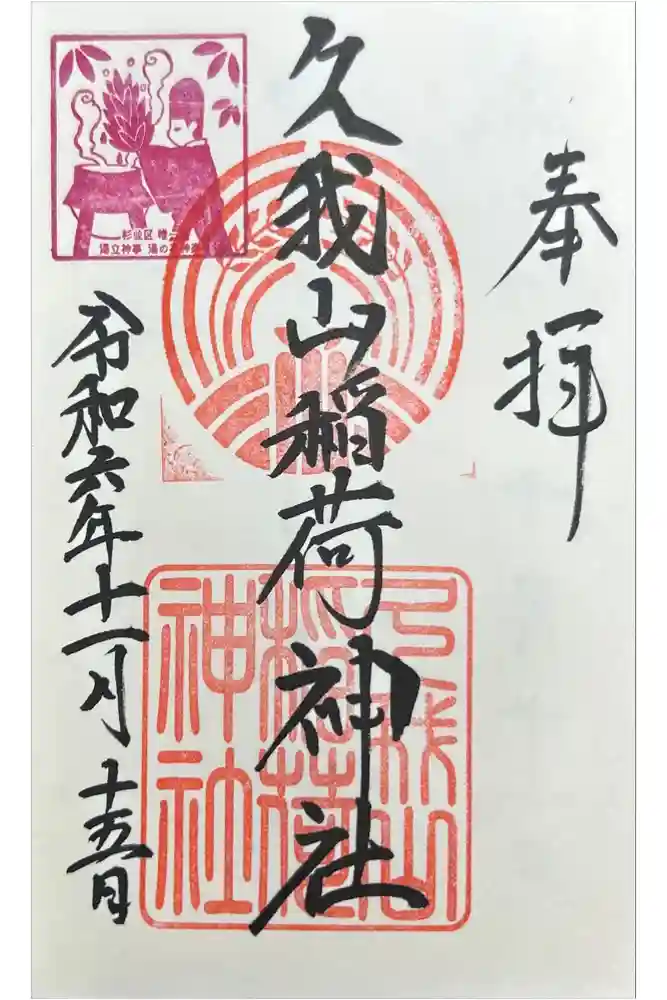 奉拝
久我山稲荷神社
令和六年十一月十五日
杉並区 唯一
湯立神事 湯の花神楽
久我山
稲荷
神社